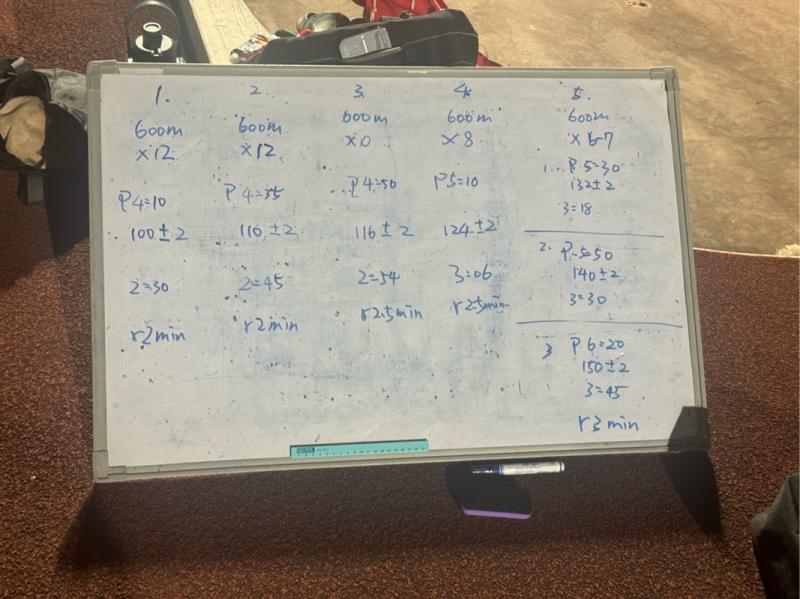 1.
600m
×12
P4=10
100±2
2=30
r2min
2.
600m
×12
P4=35
110±2
2=45
r2min
3.
600m
P4=50
116±2
2=54
r2.5min
4.
600m
×8
P5=10
124±2
3=06
r2.5min
5.
600m
1. P5=30
132±2
3=18
2. P.5=50
140±2
3=30
3 P6=20
150±2
3=45
r3min